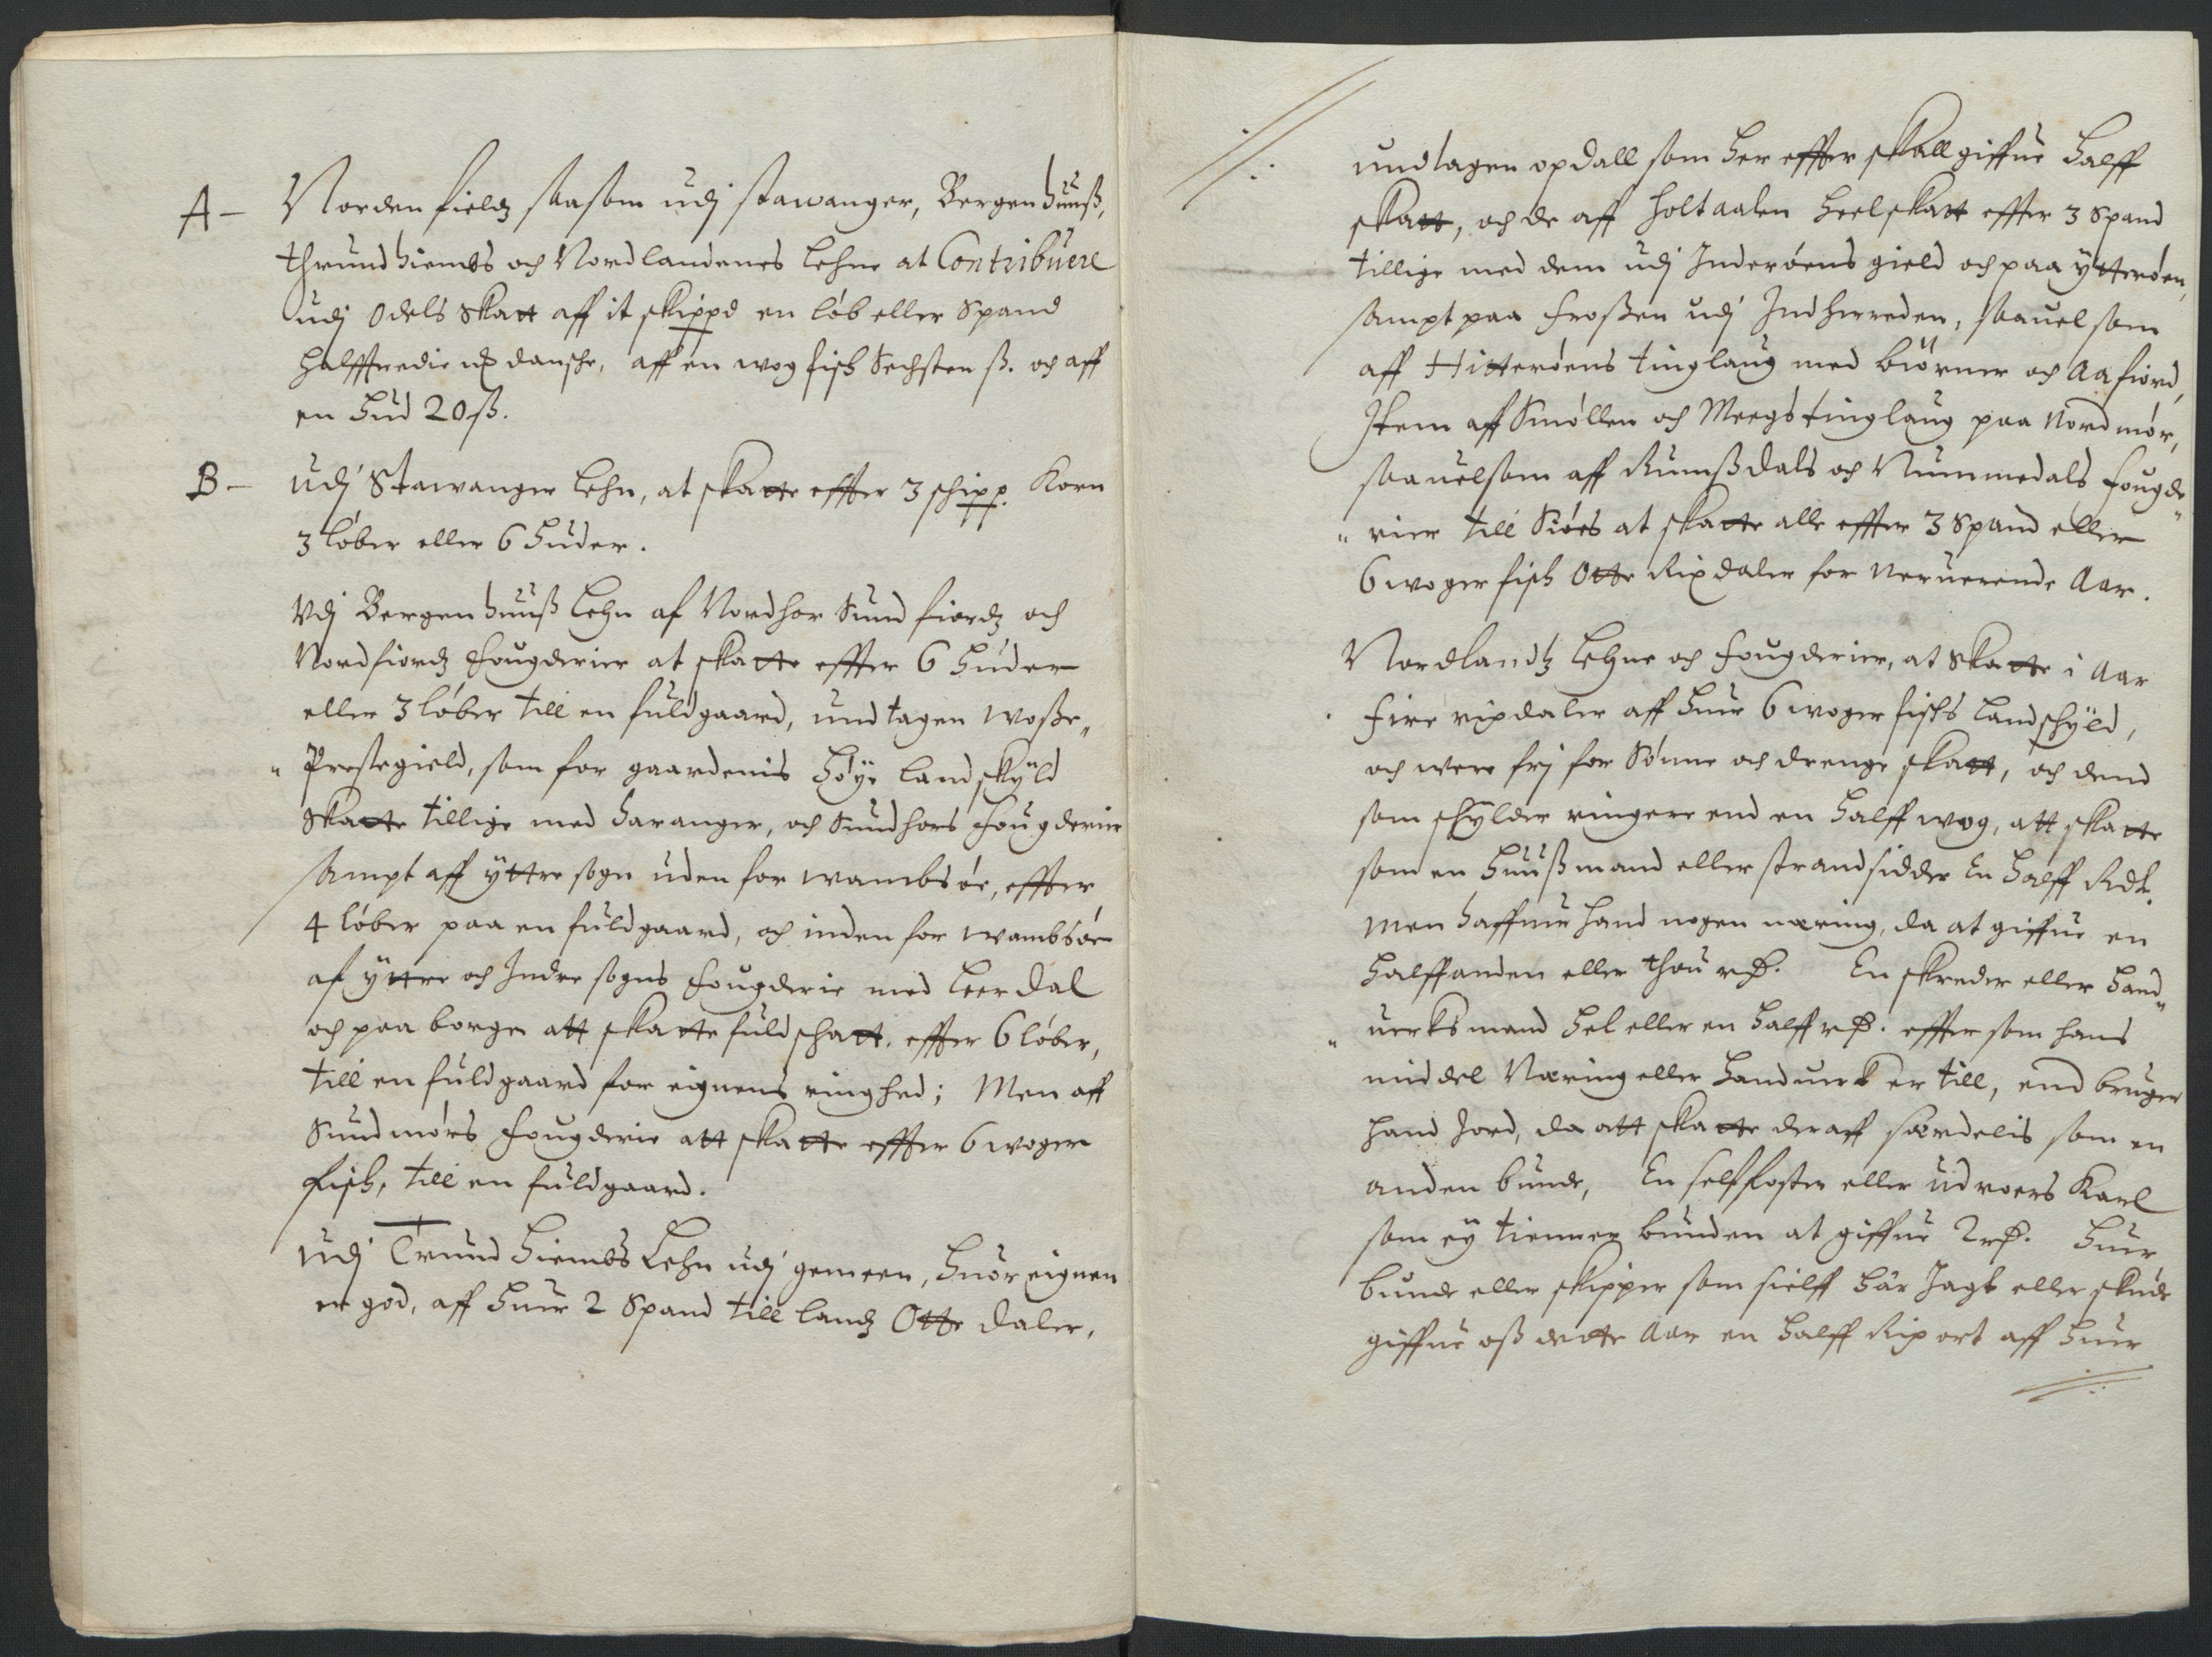 A – Norden fieldz saasom udj stawanger, Bergenhuuß,
thrundhiembs och Nordlandenes Lehne at Contribuere
udj Odels Skatt aff it skippd en løb eller Spand
halfftredie rß dansche, aff en wog fisk Sechsten ß. och aff
en hud 20 ß.
B – Udj Stawanger Lehn, at skatte effter 3 schipp. Korn
3 løber eller 6 huder.
Vdj Bergenhuuß Lehn af Nordhor Sundfiordz och
Nordfiordz Fougderier at skatte effter 6 huder
eller 3 løber till en fuldgaard, undtagen Woße„
„ Prestegield, som for gaardenis høye landskyld
Skatte tillige med Haranger, och Sundhors Fougderier
sampt aff yttre sogn uden for Wambsøe, effter
4 løber paa en fuldgaard, och inden for Wambsøe
af yttre och Indre sogns Fougderie med Leerdal
och paa borge att skatte fuldschatt, effter 6 løber,
till en fuldgaard for eignens ringhed; Men aff
Sundmørs Fougderie att skatte effter 6 woger
fisk, till en fuldgaard.
Udj Trundhiembs Lehn udj gemeen, huor eignen
er god, aff huer 2 Spand till landz Otte daler,
undtagen opdall som her effter skall giffue halff
skatt, och de aff Holtaalen heel skatt effter 3 Spand
tillige med dem udj Inderøens gield och paa ytterøen,
sampt paa Froßen udj Indherreden, saauel som
aff Hitterøens tinglaug med Biørner och Aafiord,
Item aff Smøllen och Meegs tinglaug paa Nordmør,
saauelsom aff Rumßdals och Nummedals fougde„
„ rier till Siøes at skatte alle effter 3 Spand eller
6 woger fisk Otte Rixdaler for neruerende Aar.
Nordlandz Lehne och fougderier, at skatte i Aar
fire rixdaler aff huer 6 woger fisks Landschyld,
och were frj for Sønne och drenge skatt, och dend
som schylder ringere end en halff wog, att skatte
som en huußmand eller strandsidder En halff Rdl.
men haffuer hand nogen næring, da at giffue en
halffanden eller thou rd. En skreder eller hand„
„ uerksmand hel eller en halff rd. effter som hans
middel Næring eller handuerk er till, end bruger
hand Jord, da att skatte deraff særdelis som en
anden bunde, En selffoster eller udroers Karl
som ey tienner bunden at giffue 2 rd. huer
bunde eller skipper som sielff har Jagt eller skude
giffue oß dette Aar en halff Rix ort aff huer